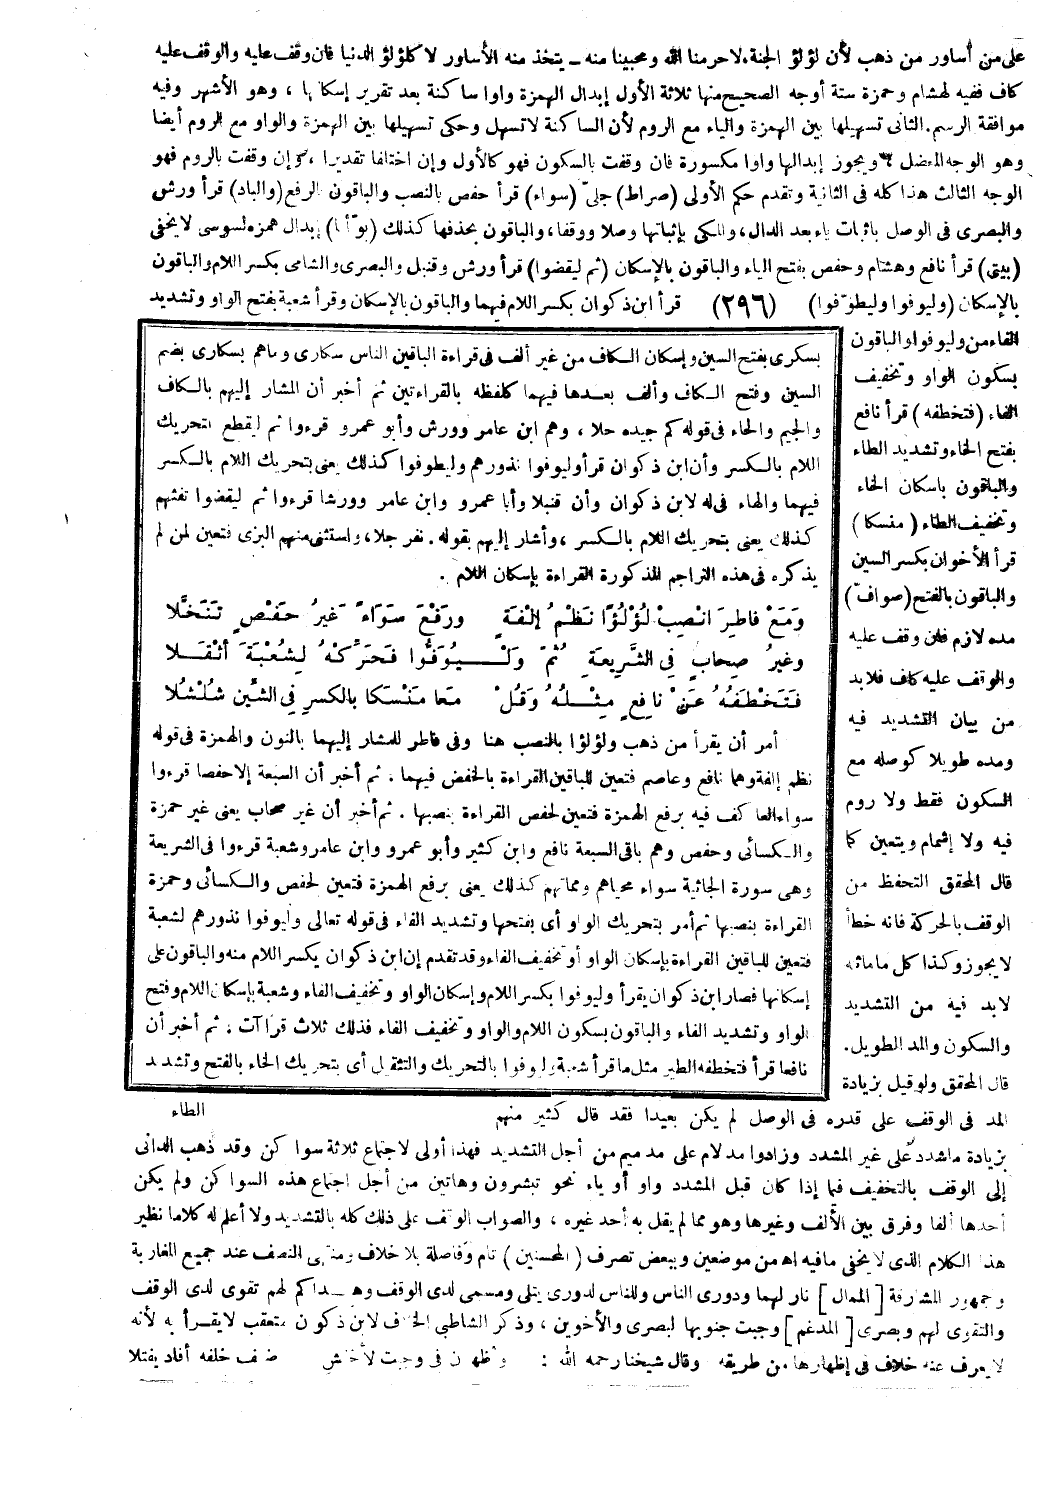 على من أساور من ذهب لأن لؤلؤ الجنة، لاحرمنا الله ومحبينا منه ــ يتخذ منه الأساور لا كلؤلؤ الدنيا فان وقف عليه والوقف عليه
كاف ففيه لهشام وحمزة ستة أوجه الصحيح منها ثلاثة الأول إبدال الهمزة واوا ساكنة بعد تقرير إسكانها ، وهو الأشهر وفيه
موافقة الرسم. الثانى تسهيلها بين الهمزة والياء مع الروم لأن الساكنة لا تسهل وحكى تسهيلها بين الهمزة والواو مع الروم أيضا
وهو الوجه المعضل ويجوز إبدالها واوا مكسورة فان وقفت بالسكون فهو كالأول وإن اختلفا تقديرا ، وإن وقفت بالروم فهو
الوجه الثالث هذا كله فى الثانية وتقدم حكم الأولى (صراط) جلىّ (سواء) قرأ حفص بالنصب والباقون الرفع (والباد) قرأ ورش
والبصرى فى الوصل باثبات ياء بعد الدال، والمكى بإثباتها وصلا ووقفا، والباقون بحذفها كذلك (بوّأنا) إبدال همزه لسوسى لايخفى
(بيتى) قرأ نافع وهشام وحفص بفتح الياء والباقون بالإسكان (ثم ليقضوا) قرأ ورش وقنبل والبصرى والشامى بكسر اللام والباقون
بالإسكان (وليوفوا وليطوّفوا) (٢٩٦) قرأ ابن ذكوان بكسر اللام فيهما والباقون بالإسكان وقرأ شعبة بفتح الواو وتشديد
الفاء من وليوفوا والباقون
بسكون الواو وتخفيف
الفاء (فتخطفه) قرأ نافع
بفتح الخاء وتشديد الطاء
والباقون باسكان الخاء
وتخفيف الطاء (منسكا)
قرأ الأخوان بكسر السين
والباقون بالفتح (صوافّ)
مده لازم فان وقف عليه
والوقف عليه كاف فلابد
من بيان التشديد فيه
ومده طويلا كوصله مع
السكون فقط ولا روم
فيه ولا إشمام ويتعين كما
قال المحقق التحفظ من
الوقف بالحركة فانه خطأ
لايجوز وكذا كل ماماثله
لابد فيه من التشديد
والسكون والمد الطويل.
قال المحقق ولو قيل بزيادة
المد فى الوقف على قدره فى الوصل لم يكن بعيدا فقد قال كثير منهم
بزيادة ماشدد على غير المشدد وزادوا مد لام على مد ميم من أجل التشديد فهذا أولى لاجتماع ثلاثة سواكن وقد ذهب الدانى
إلى الوقف بالتخفيف فيما إذا كان قبل المشدد واو أو ياء نحو تبشرون وهاتين من أجل اجتماع هذه السواكن ولم يكن
أحدها ألفا وفرق بين الألف وغيرها وهو مما لم يقل به أحد غيره ، والصواب الوقف على ذلك كله بالتشديد ولا أعلم له كلاما نظير
هذا الكلام الذى لايخفى مافيه اه من موضعين وببعض تصرف (المحسنين) تام وفاصلة بلا خلاف ومنتهى النصف عند جميع المغاربة
وجمهور المشارقة [الممال] نار لهما ودورى الناس وللناس لدورى يتلى ومسمى لدى الوقف وهداكم لهم تقوى لدى الوقف
والتقوى لهم وبصرى [المدغم] وجبت جنوبها لبصرى والأخوين ، وذكر الشاطبى الخلاف لابن ذكوان متعقب لايقرأ به لأنه
لايعرف عنه خلاف فى إظهارها من طريقه وقال شيخنا رحمه الله : وأظهرن فى وجبت لأخفش ضعف خلفه أفاد يفتلا
بسكرى بفتح السين وإسكان الكاف من غير ألف فى قراءة الباقين الناس سكارى وماهم بسكارى بضم
السين وفتح الكاف وألف بعدها فيهما كلفظه بالقراءتين ثم أخبر أن المشار إليهم بالكاف
والجيم والحاء فى قوله كم جيده حلا ، وهم ابن عامر وورش وأبو عمرو قرءوا ثم ليقطع بتحريك
اللام بالكسر وأن ابن ذكوان قرأ وليوفوا نذورهم وليطوفوا كذلك يعنى بتحريك اللام بالكسر
فيهما والهاء فى له لابن ذكوان وأن قنبلا وأبا عمرو وابن عامر وورشا قرءوا ثم ليقضوا تفثهم
كذلك يعنى بتحريك اللام بالكسر ، وأشار إليهم بقوله. نفر جلا، واستثنى منهم البزى فتعين لمن لم
يذكره فى هذه التراجم المذكورة القراءة بإسكان اللام .
وَمَعْ فَاطِرَ انْصِبْ لُؤْلُؤًا نَظْمُ إِلْفَةٍ وَرَفْعَ سَوَاءً غَيْرُ حَفْصٍ تَنَخَّلَا
وَغَيْرُ صِحَابٍ فِي الشَّرِيعَةِ ثُمَّ وَلْـيُوَفُّوا فَحَرِّكْهُ لِشُعْبَةَ أَثْقَلَا
فَتَخْطَفُهُ عَنْ نَافِعٍ مِثْلُهُ وَقُلْ مَعًا مَنْسَكًا بِالكَسْرِ فِي الشِّينِ شُلْشُلَا
أمر أن يقرأ من ذهب ولؤلؤا بالنصب هنا وفى فاطر للمشار إليهما بالنون والهمزة فى قوله
نظم إلفة وهما نافع وعاصم فتعين للباقين القراءة بالخفض فيهما . ثم أخبر أن السبعة إلا حفصا قرءوا
سواء العاكف فيه برفع الهمزة فتعين لحفص القراءة بنصبها . ثم أخبر أن غير صحاب يعنى غير حمزة
والكسائى وحفص وهم باقى السبعة نافع وابن كثير وأبو عمرو وابن عامر وشعبة قرءوا فى الشريعة
وهى سورة الجاثية سواء محياهم ومماتهم كذلك يعنى برفع الهمزة فتعين لحفص والكسائى وحمزة
القراءة بنصبها ثم أمر بتحريك الواو أى بفتحها وتشديد الفاء فى قوله تعالى وليوفوا نذورهم لشعبة
فتعين للباقين القراءة بإسكان الواو أو تخفيف الفاء وقد تقدم إن ابن ذكوان يكسر اللام منه والباقون على
إسكانها فصار ابن ذكوان يقرأ وليوفوا بكسر اللام وإسكان الواو وتخفيف الفاء وشعبة بإسكان اللام وفتح
الواو وتشديد الفاء والباقون بسكون اللام والواو وتخفيف الفاء فذلك ثلاث قراآت . ثم أخبر أن
نافعا قرأ فتخطفه الطير مثل ما قرأ شعبة وليوفوا بالتحريك والتثقيل أى بتحريك الخاء بالفتح وتشديد
الطاء